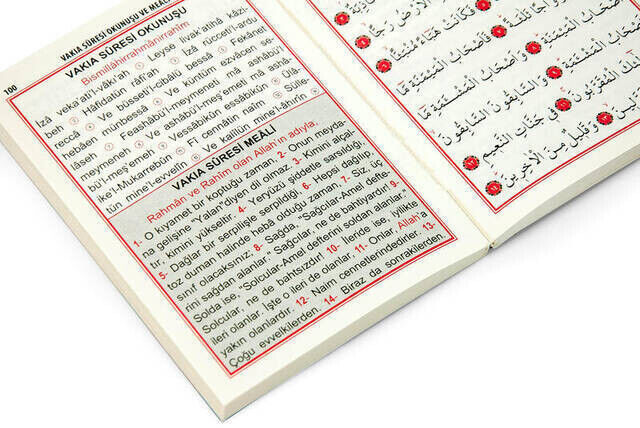 100
VAKIA SÛRESİ OKUNUŞU VE MEALİ
VAKIA SÛRESİ OKUNUŞU
Bismillâhirrahmânirrahîm
İzâ veka'ati'l-vâkı'ah Leyse livak'atihâ kâzi-
beh Hâfidatün râfi'ah İzâ rucceti'l-ardu
reccâ Ve büsseti'l-cibâlü bessâ Fekânet
hebâen münbessâ Ve küntüm ezvâcen se-
lâseh Feashâbü'l-meymeneti mâ ashâbü'l
meymeneh Ve ashâbü'l-meş'emeti mâ ashâ-
bü'l-meş'emeh Vessâbikûn essâbikûn Ülâi-
ike'l-Mukarrebûn Fî cennâtin naîm Sülle-
tün mine'l-evvelîn Ve kalîlün mine'l-âhırîn
VAKIA SÛRESİ MEALİ
Rahmân ve Rahîm olan Allah'ın adıyla,
1- O kıyamet bir koptuğu zaman, 2- Onun meyda-
na gelişine "Yalan"diyen dil olmaz. 3- Kimini alçal-
tır, kimini yükseltir. 4- Yeryüzü şiddetle sarsıldığı,
5- Dağlar bir serpilişle serpildiği, 6- Hepsi dağılıp,
toz duman halinde hebâ olduğu zaman, 7- Siz, üç
sınıf olacaksınız: 8- Sağda, "Sağcılar-Amel defte-
rini sağdan alanlar." Sağcılar, ne de bahtiyardır! 9-
Solda ise, "Solcular-Amel defterini soldan alanlar."
Solcular, ne de bahtsızdır! 10- İleride ise, iyilikte
ileri olanlar. İşte o ileri de olanlar. 11- Onlar, Allah'a
yakın olanlardır. 12- Naim cennetlerindedirler. 13-
Çoğu evvelkilerden. 14- Biraz da sonrakilerden.
وَكُنْتُمْ أَزْوَاجًا ثَلَاثَةً
فَأَصْحَابُ الْمَيْمَنَةِ مَا
وَأَصْحَابُ الْمَشْئَمَةِ مَا
وَالسَّابِقُونَ السَّابِقُونَ
الْمُقَرَّبُونَ فِي جَنَّاتِ النَّعِيمِ
وَقَلِيلٌ مِنَ الْآخِرِينَ